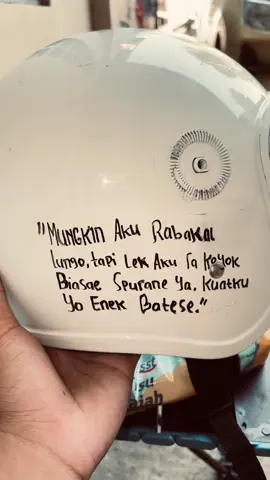 "Mungkin Aku Rabakal
lungo, tapi Lek Aku Ra Koyok
Biasae Sepurane Ya, Kuatku
Yo Enek Batese."